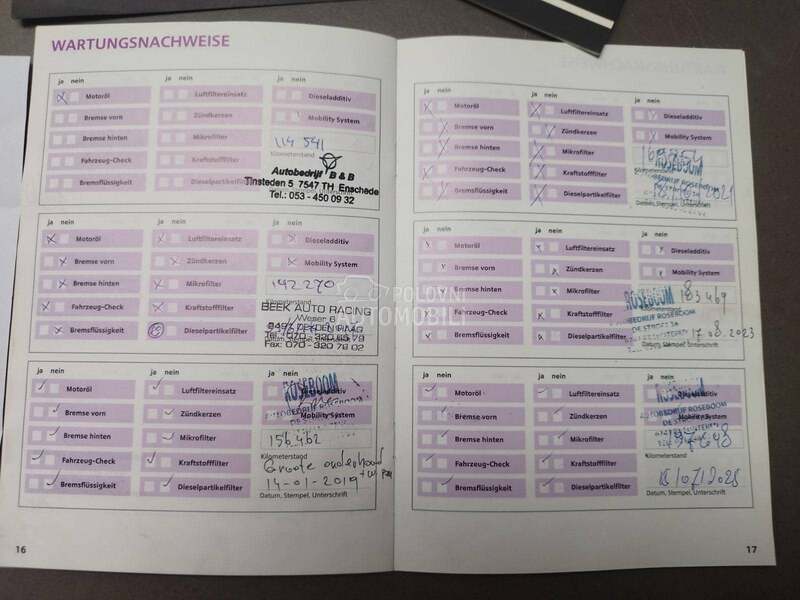 WARTUNGSNACHWEISE
ja nein ja nein ja nein
Motoröl Luftfiltereinsatz Dieseladditiv
Bremse vorn Zündkerzen Mobility System
Bremse hinten Mikrofilter 114 541
Kilometerstand
Fahrzeug-Check Kraftstofffilter
Autobedrijf B & B
Bremsflüssigkeit Dieselpartikelfilter
Tinsteden 5 7547 TH Enschede
Tel.: 053 - 450 09 32
ja nein ja nein ja nein
Motoröl Luftfiltereinsatz Dieseladditiv
Bremse vorn Zündkerzen Mobility System
Bremse hinten Mikrofilter 142 270
Kilometerstand
Fahrzeug-Check Kraftstofffilter
BEEK AUTO RACING
Weser 6
Bremsflüssigkeit Dieselpartikelfilter
Fax: 070 - 320 78 02
ja nein ja nein ja nein
Motoröl Luftfiltereinsatz
ROSEBOOM
Bremse vorn Zündkerzen Mobility System
Bremse hinten Mikrofilter 156462
Kilometerstand
Fahrzeug-Check Kraftstofffilter
Groote onderhoud
Bremsflüssigkeit Dieselpartikelfilter 14-01-2019
Datum, Stempel, Unterschrift
16
ja nein ja nein ja nein
Motoröl Luftfiltereinsatz Dieseladditiv
Bremse vorn Zündkerzen Mobility System
Bremse hinten Mikrofilter
ROSEBOOM
Fahrzeug-Check Kraftstofffilter
Bremsflüssigkeit Dieselpartikelfilter
Datum, Stempel, Unterschrift
ja nein ja nein ja nein
Motoröl Luftfiltereinsatz Dieseladditiv
Bremse vorn Zündkerzen Mobility System
Bremse hinten Mikrofilter
ROSEBOOM 183469
Kilometerstand
Fahrzeug-Check Kraftstofffilter
AUTOBEDRIJF ROSEBOOM
Bremsflüssigkeit Dieselpartikelfilter 17.08.2023
Datum, Stempel, Unterschrift
ja nein ja nein ja nein
Motoröl Luftfiltereinsatz
ROSEBOOM
Bremse vorn Zündkerzen
AUTOBEDRIJF ROSEBOOM
Bremse hinten Mikrofilter
Kilometerstand
Fahrzeug-Check Kraftstofffilter
Bremsflüssigkeit Dieselpartikelfilter
Datum, Stempel, Unterschrift
17
POLOVNI
AUTOMOBILI